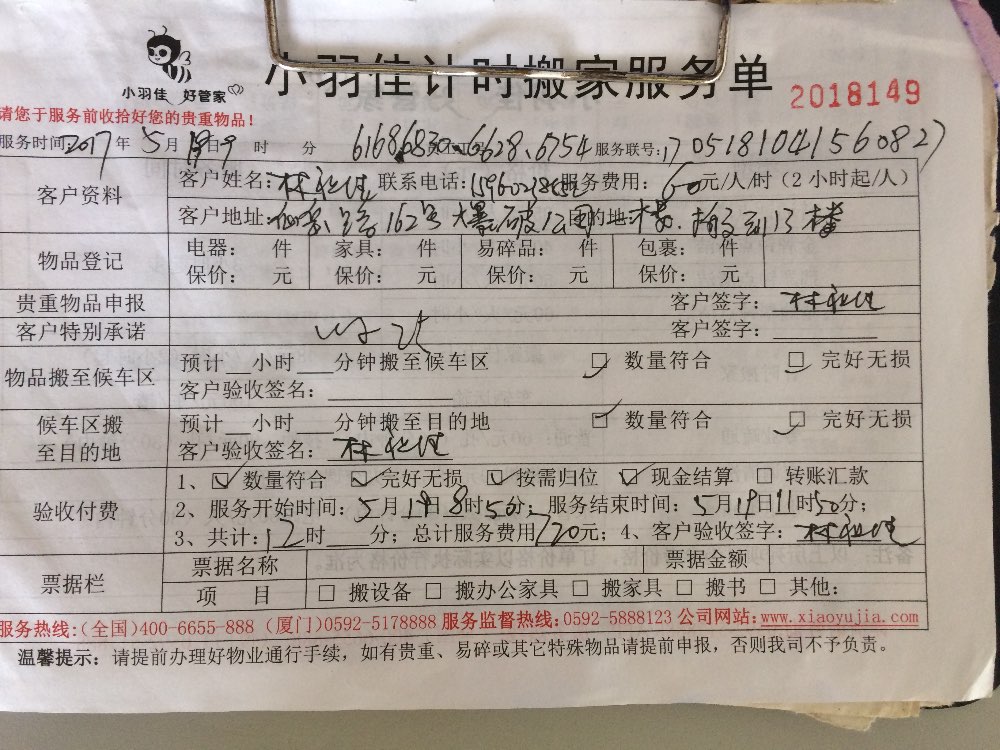 小羽佳 好管家
小羽佳计时搬家服务单
2018149
请您于服务前收拾好您的贵重物品！
服务时间：2017年5月19日 时 分 6168 6628.6754 服务联号：170518104156082
客户资料 客户姓名：林 联系电话： 服务费用：60元/人/时（2小时起/人）
客户地址：仙岳路162号爆破公司 目的地： 楼 搬到13楼
物品登记 电器： 件 家具： 件 易碎品： 件 包裹： 件
保价： 元 保价： 元 保价： 元 保价： 元
贵重物品申报 客户签字：林
客户特别承诺 客户签字：
物品搬至候车区 预计__小时___分钟搬至候车区 ☑ 数量符合 ☑ 完好无损
客户验收签名：
候车区搬至目的地 预计__小时___分钟搬至目的地 ☑ 数量符合 ☑ 完好无损
客户验收签名：林
验收付费 1、☑ 数量符合 ☑ 完好无损 ☑ 按需归位 ☑ 现金结算 □ 转账汇款
2、服务开始时间：5月19日8时50分；服务结束时间：5月19日11时50分；
3、共计：12时___分；总计服务费用720元；4、客户验收签字：林
票据栏 票据名称 票据金额
项 目 □ 搬设备 □ 搬办公家具 □ 搬家具 □ 搬书 □ 其他：
服务热线：（全国）400-6655-888（厦门）0592-5178888 服务监督热线：0592-5888123 公司网站：www.xiaoyujia.com
温馨提示：请提前办理好物业通行手续，如有贵重、易碎或其它特殊物品请提前申报，否则我司不予负责。